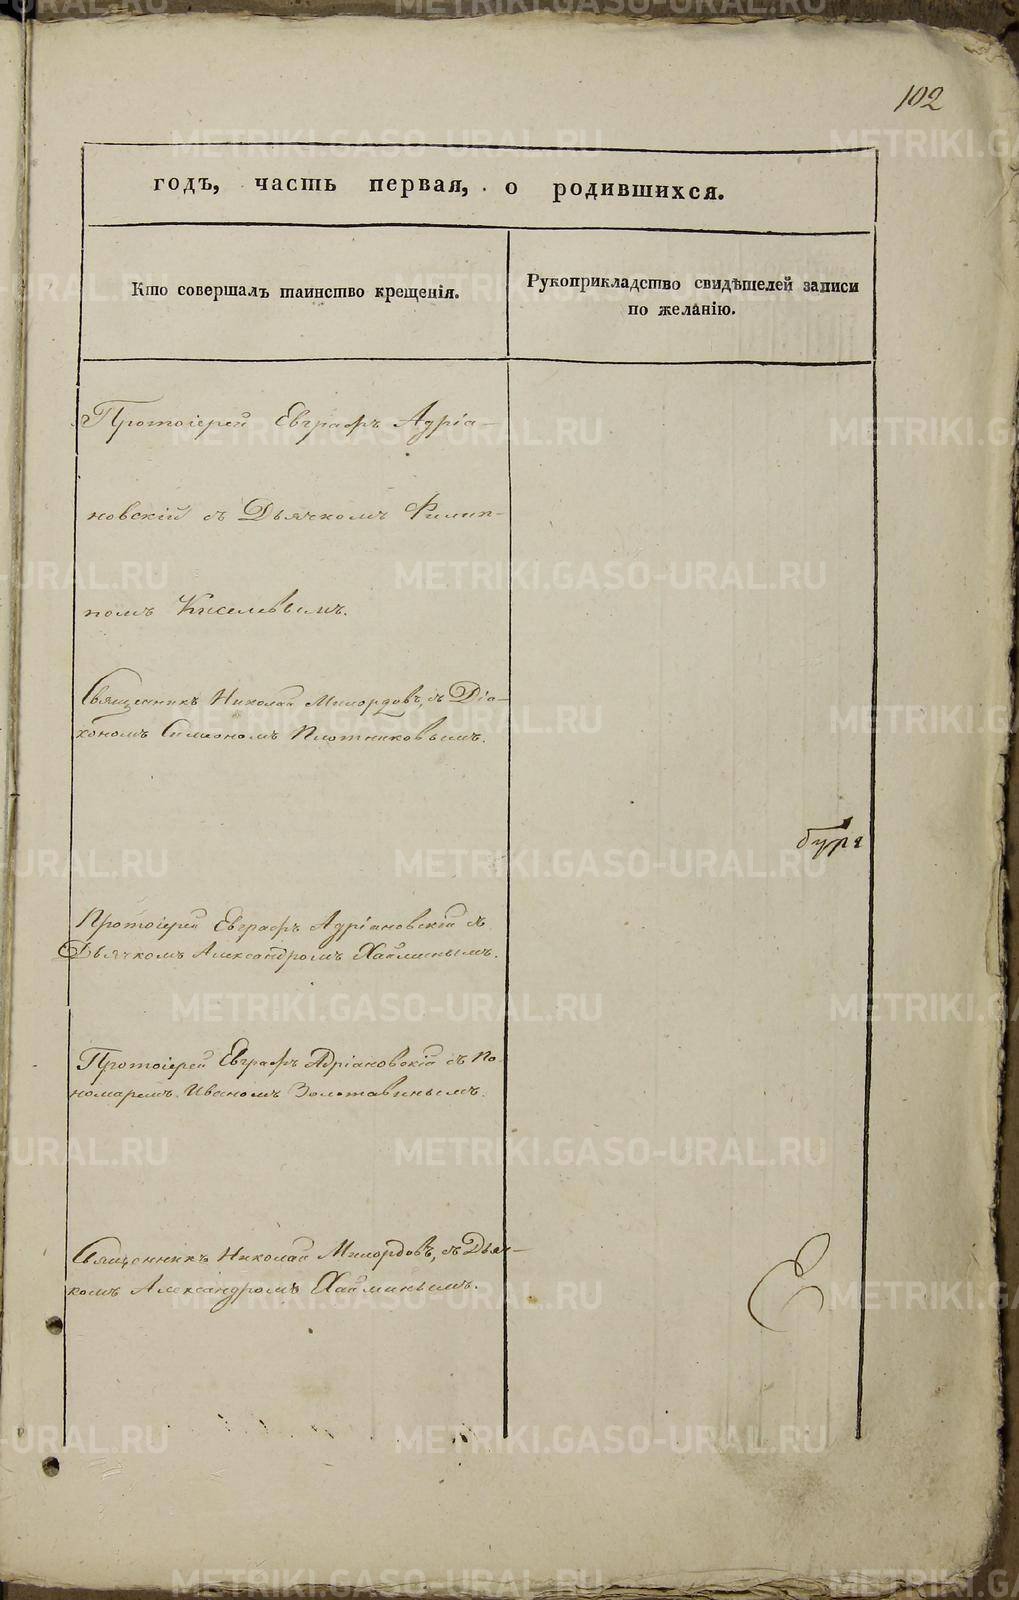 102
годъ, часть первая, о родившихся.
Кто совершалъ таинство крещенія.
Рукоприкладство свидѣтелей записи
по желанію.
Протоіерей Евграфъ Адріа-
новскій съ Дьячкомъ Филип-
помъ Киселевымъ.
Священникъ Николай Милордовъ, съ Діа-
кономъ Симеономъ Плотниковымъ.
Протоіерей Евграфъ Адріановскій съ
Дьячкомъ Александромъ Хайминымъ.
Протоіерей Евграфъ Адріановскій съ По-
номаремъ Иваномъ Золотавинымъ.
Священникъ Николай Милордовъ, съ Дьяч-
комъ Александромъ Хайминымъ.
METRIKI.GASO-URAL.RU